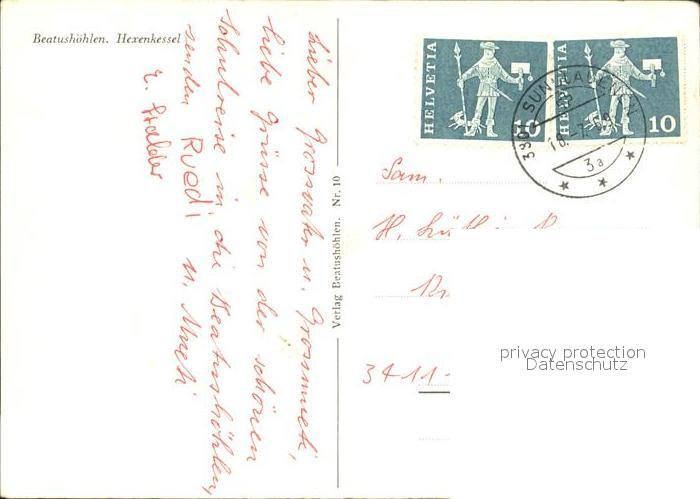 Beatushöhlen. Hexenkessel
Lieber Grossvater u. Grossmueti,
liebe Grüsse von der schönen
Schulreise in die Beatushöhlen,
senden Ruedi u. Mueti
Verlag Beatushöhlen. Nr. 10
HELVETIA
10
HELVETIA
10
SUNDLAUENEN
3a
Fam.
H. Lüthi
3411
privacy protection
Datenschutz